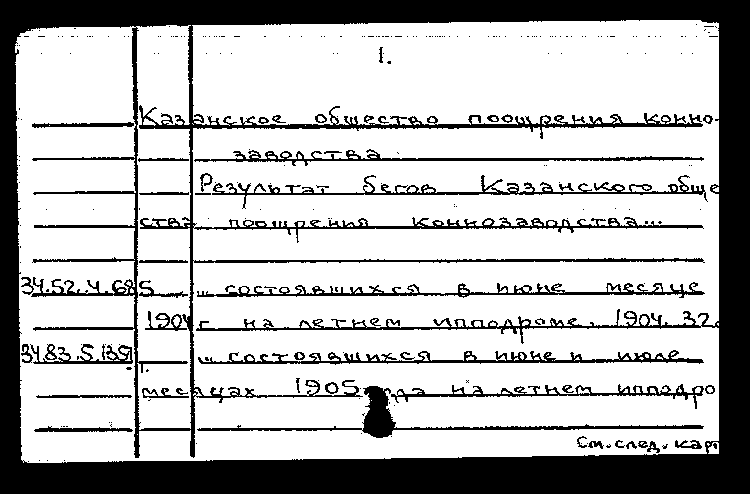 1.
Казанское общество поощрения конно-
заводства
Результат бегов Казанского обще
ства поощрения коннозаводства...
34.52.4.685 ... состоявшихся в июне месяце
1904 г на летнем ипподроме. 1904. 32
34.83.5.1351 ... состоявшихся в июне и июле
месяцах 1905 на летнем ипподро
См. след. карт